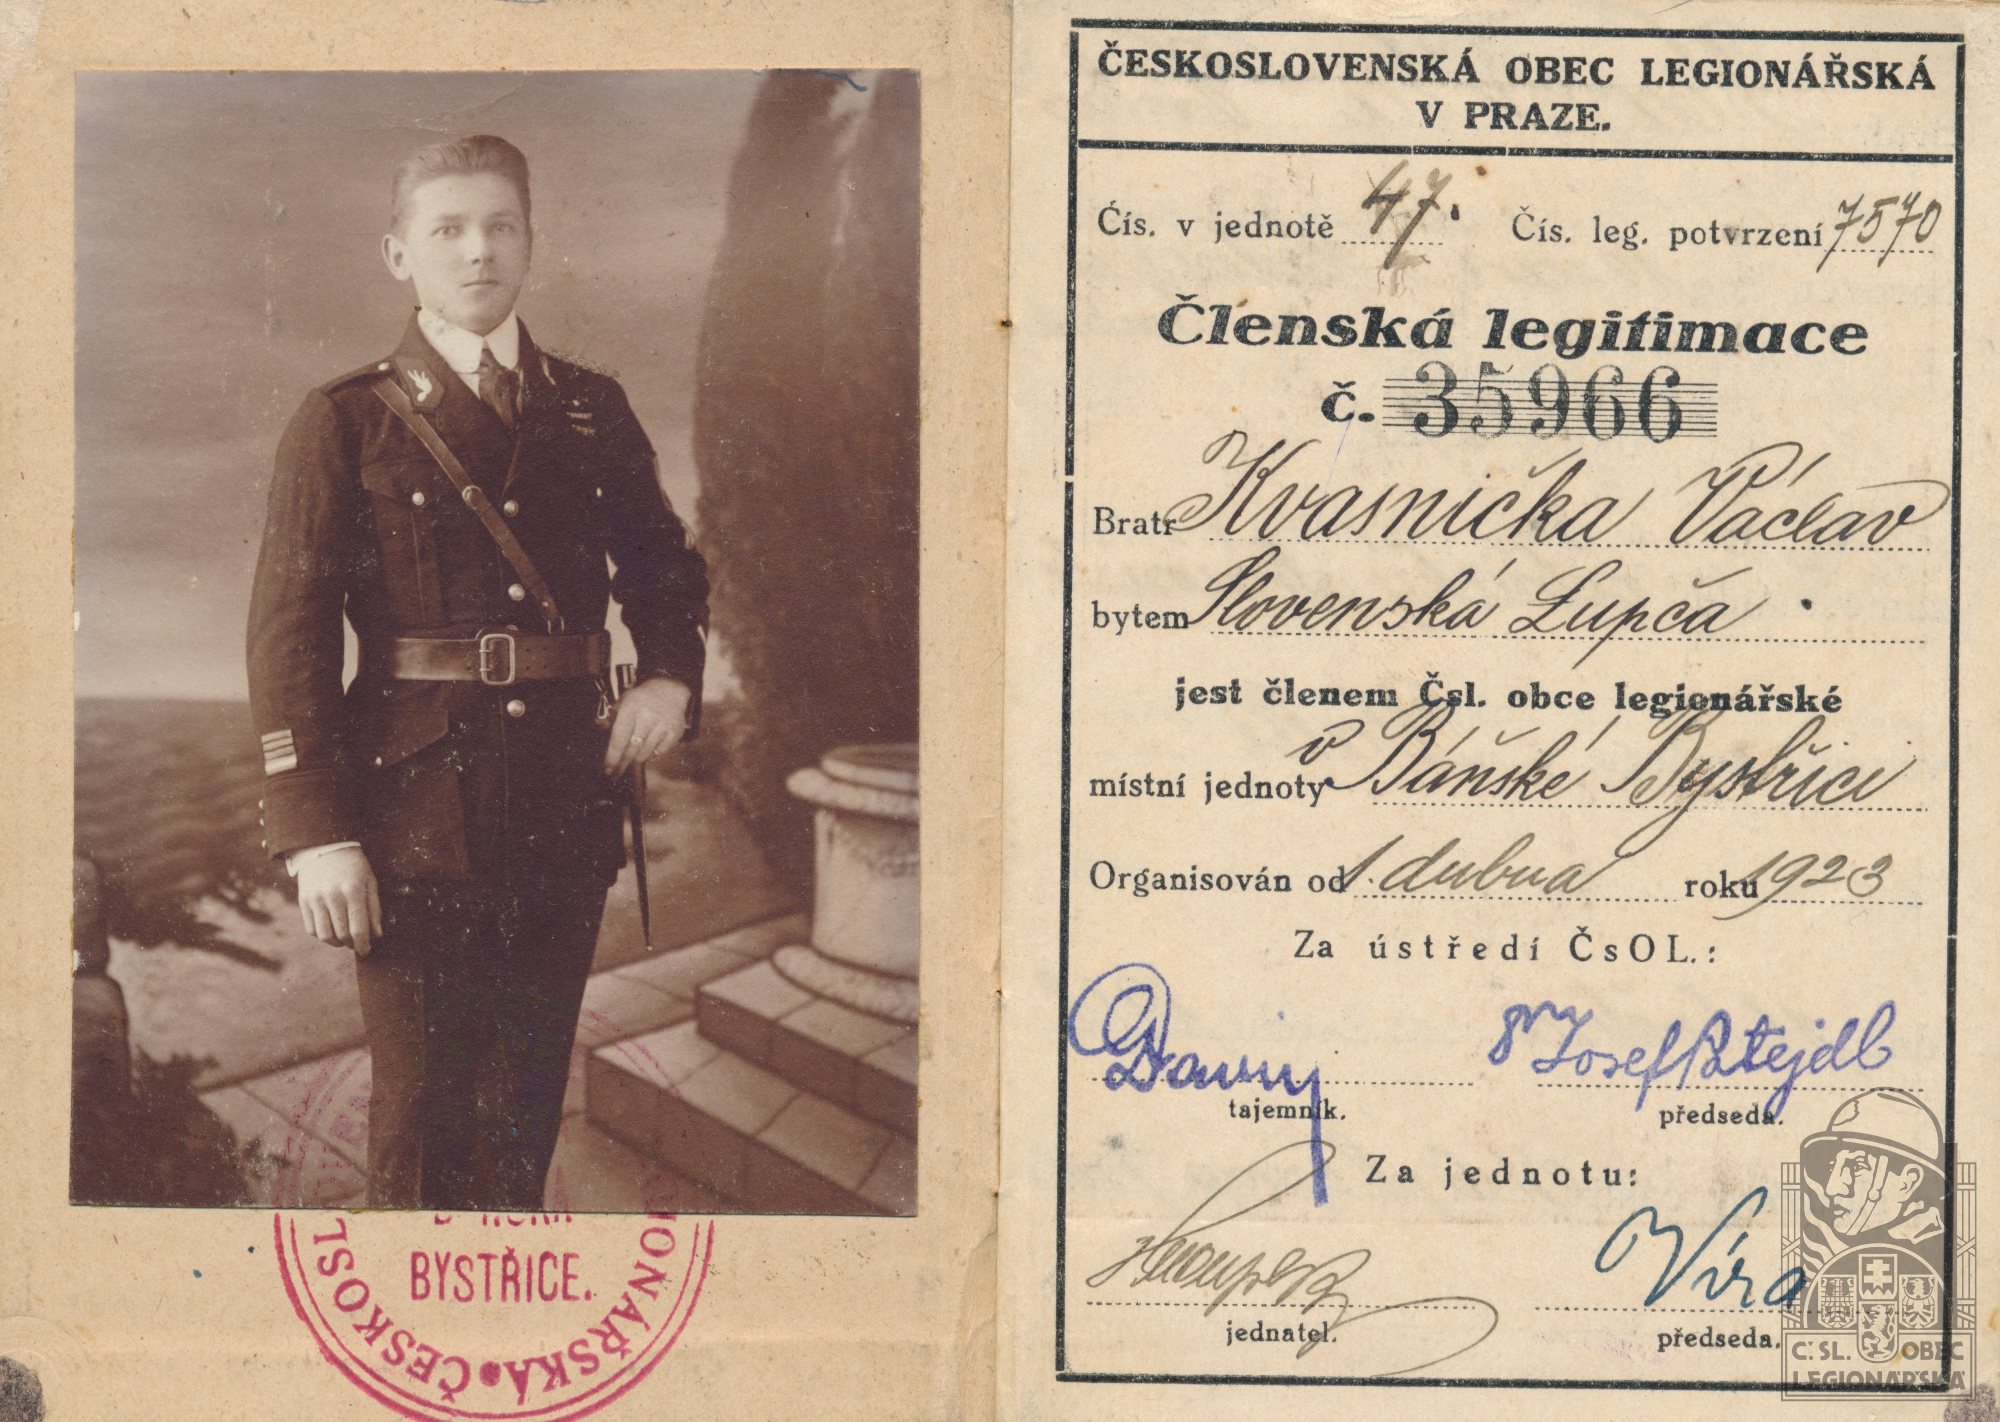 ČESKOSLOVENSKÁ OBEC LEGIONÁŘSKÁ
V PRAZE.
Čís. v jednotě 47. Čís. leg. potvrzení 7570
Členská legitimace
č. 35966
Bratr Kvasnička Václav
bytem Slovenská Lupča.
jest členem Čsl. obce legionářské
místní jednoty v Báňské Bystřici
Organisován od 1. dubna roku 1923
Za ústředí ČsOL.:
Josef Patejdl
tajemník. předseda.
Za jednotu:
Víra
jednatel. předseda.
BYSTŘICE.
ČESKOSL
IONÁŘSKÁ
Č. SL. OBEC
LEGIONÁŘSKÁ